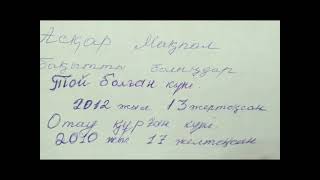 Асқар Мақпал
бақытты болыңдар
Той болған күні
2012 жыл 13 желтоқсан
Отау құрған күні
2010 жыл 17 желтоқсан